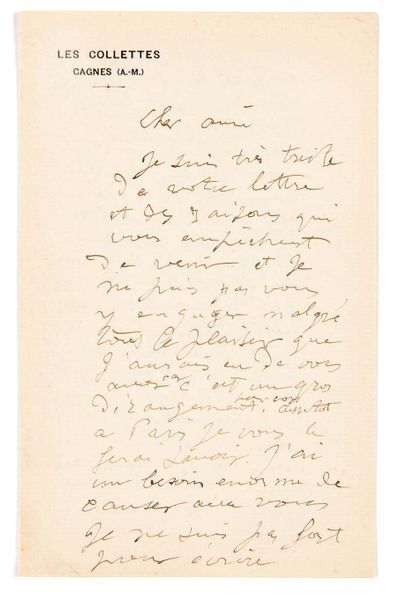 LES COLLETTES
CAGNES (A.-M.)
Cher ami
Je suis très triste
de votre lettre
et des raisons qui
vous empêchent
de venir et je
ne puis pas vous
y engager malgré
tout le plaisir que
j'aurais eu de vous
avoir car c'est un gros
dérangement, pour vous aussitot
a Paris je vous le
ferai savoir. J'ai
un besoin enorme de
causer avec vous
Je ne suis pas fort
pour écrire